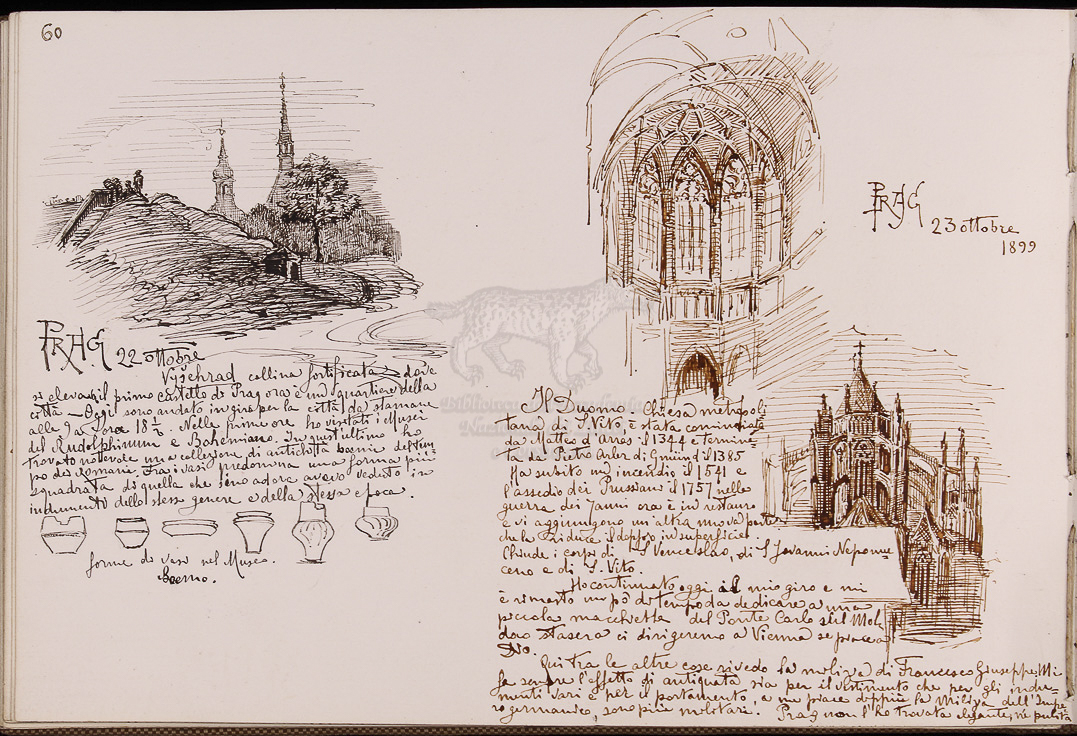 60
PRAG 22 ottobre
Vyšehrad collina fortificata dove
si elevava il primo castello di Prag ora è un quartiere della
città — Oggi sono andato in giro per la città da stamane
alle 9 a ora 18 ½. Nelle prime ore ho visitati i Musei
del Rudolphinum e Bohemiano. In quest'ultimo ho
trovato notevole una collezione di antichità boeme dei tem
po dei Romani. Tra i vasi predomina una forma più
squadrata di quella che sino adora avevo veduto in
dello stesso genere e della stessa epoca.
forme di vasi nel Museo
Boemo.
PRAG
23 ottobre
1899
Il Duomo. Chiesa metropoli
tana di S. Vito, è stata cominciata
da Matteo d'Arras il 1344 e termina
ta da Pietro Arler di Gmünd il 1385
Ha subito un incendio il 1541 e
l'assedio dei Prussiani il 1757 nella
guerra dei 7 anni ora è in restauro
e vi aggiungono un'altra nuova parte
che lo riduce il doppio in superficie.
Chiude i corpi di S. Venceslao, di S. Giovanni Nepomu
ceno e di S. Vito.
Ho continuato oggi il mio giro e mi
è rimasto un pò di tempo da dedicare a una
piccola macchietta del Ponte Carlo sul Mol
dao stasera ci dirigeremo a Vienna se piace a
Dio.
Qui tra le altre cose rivedo la milizia di Francesco Giuseppe. Mi
fa sempre l'effetto di antiquata sia per il vestimento che per gli indu-
menti vari e per il portamento, a me piace doppiù la Milizia dell'Impe
ro germanico, sono più militari. Prag non l'ho trovata elegante, nè pulita